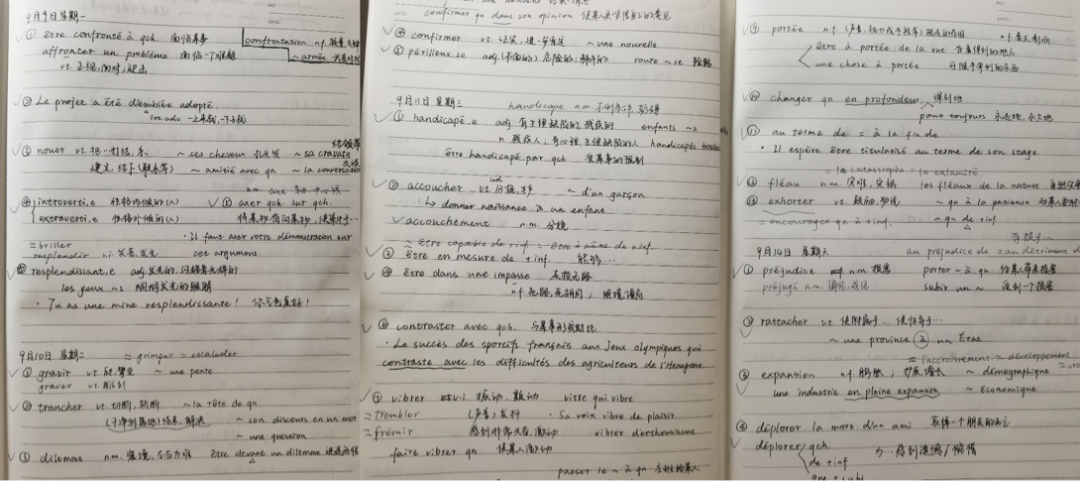 9月9日 星期一
① être confronté à qch 面临某事
confrontation n.f.
affronter un problème 面临一个难题
~ armée
vt. 正视,面对,迎击
② Le projet a été d'emblée adopté.
loc.adv 一上来就,一下子就
③ nouer vt. 把…打结,系 ~ ses cheveux 扎头发 ~ sa cravate
建立,结下(联系等) ~ amitié avec qn ~ la conversation
n.m. axe
④ introverti.e 性格内倾的(人) ⑤ axer qch sur qch.
extraverti.e 性格外倾的(人)
· il faut axer votre démonstration sur
≈ briller
resplendir v.i. 发亮,发光 cet argument.
resplendissant.e adj. 发光的,闪耀着光辉的
les yeux ~s
· Tu as une mine resplendissante! 你气色真好!
9月10日 星期二 ≈ grimper = escalader
① gravir vt. 爬,攀登 ~ une pente
graver vt. 雕刻
② trancher vt. 切断,割断 ~ la tête de qn
结束,解决 ~ son discours en un mot
~ une question
③ dilemme n.m. être devant un dilemme 进退两难
confirmer qn dans son opinion 使某人更坚信自己的意见
④ confirmer vt. 证实,进一步肯定 ~ une nouvelle
⑤ périlleux,se adj. 危险的 route ~se 险路
9月11日 星期三 handicape n.m.
① handicapé.e adj. 有生理缺陷的,残疾的 enfants ~s
n. 残疾人,有心理生理缺陷的人 handicapés
être handicapé par qch. 受某事的限制
② accoucher vt. ind 分娩,生产 ~ d'un garçon
↳ donner naissance à un enfant
accouchement n.m. 分娩
≈ être capable de + inf = être à même de + inf
③ être en mesure de + inf. 能够…
④ être dans une impasse 走投无路
n.f. 死路,死胡同; 绝境,僵局
⑥ contraster avec qch. 与某事形成对比
· Le succès des sportifs français aux Jeux olympiques qui
contraste avec les difficultés des agriculteurs de l'Hexagone
⑦ vibrer vt.vi 振动,颤动 vitre qui vibre
≈ trembler (声音)发抖 · Sa voix vibre de plaisir.
≈ frémir vibrer d'enthousiasme
faire vibrer qn 使某人激动
passer le ~ à qn
⑨ portée n.f.
être à portée de la vue 在看得到的地方
une chose à portée
⑩ changer qn en profondeur 深刻地
pour toujours 永远地,永久地
⑪ au terme de = à la fin de
· Il espère être titularisé au terme de son stage.
= la catastrophe = la calamité
⑫ fléau n.m. 灾难,灾祸 les fléaux de la nature
⑬ exhorter vt. 鼓励,劝说 ~ qn à la patience
= encourager qn à + inf. ~ qn de + inf
9月14日 星期六 au préjudice de = au détriment d
① préjudice n.m. 损害 porter ~ à qn 给某人带来损害
préjugé n.m. 偏见,成见 subir un ~ 受到一个损害
② rattacher vt. 使附属于… 使归于…
~ une province à un Etat
= l'accroissement = développement
③ expansion n.f. 膨胀; 扩展,增长 ~ démographique
une industrie en pleine expansion ~ économique
④ déplorer la mort d'un ami 哀悼一个朋友的死亡
déplorer qch. 为…感到遗憾/惋惜
de + inf
que + subj